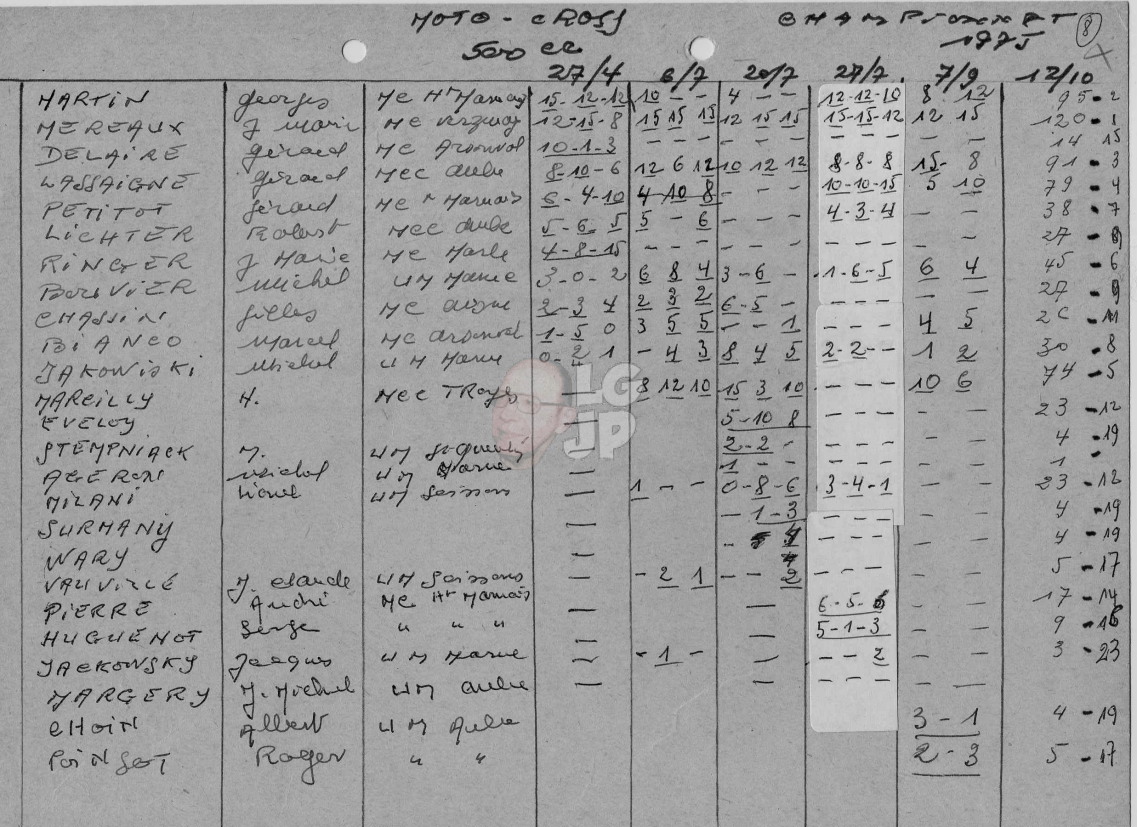 MOTO - CROSS CHAMPIONNAT 8
500 cc 1975
27/4 6/7 20/7 27/7 7/9 12/10
MARTIN Georges MC Ht Marnais 15-12-12 10 - - 4 - - 12-12-10 8 12 95 - 2
MEREAUX J Marie MC 12-15-8 15 15 15 12 15 15 15-15-12 12 15 120 - 1
DELAIRE Gérard MC Arsonval 10-1-3 - - - - - - - - - - - 14 15
LASSAIGNE Gérard MCC Aube 8-10-6 12 6 12 10 12 12 8-8-8 15- 8 91 - 3
PETITOT Gérard MC Ht Marnais 6-4-10 4 10 8 - - - 10-10-15 5 10 79 - 4
LICHTER Robert MCC Aube 5-6-5 5 - 6 - - - 4-3-4 - - 38 - 7
RINGER J Marie MC Marle 4-8-15 - - - - - - - - - - - 27 - 9
BOUVIER Michel UM Marne 3-0-2 6 8 4 3-6 - -1-6-5 6 4 45 - 6
CHASSIN Gilles MC 2-3 4 2 3 2 6-5 - - - 27 - 9
BIANCO Marcel MC Arsonval 1-5 0 3 5 5 - - 1 - - - 4 5 26 - 11
JAKOWISKI Michel UM Marne 0-2 1 - 4 3 8 4 5 2-2-- 1 2 30 - 8
MAREILLY H. MCC TROYES — 8 12 10 15 3 10 - - - 10 6 74 - 5
EVELOY — 5-10 8 - - - - - 23 - 12
STEMPNIACK J. UM St Quentin 2-2 - - - - - - 4 - 19
AGERON Michel UM Marne — 1 - - - - - - - 1
MILANI Lionel UM Soissons — 1 - - 0-8-6 3-4-1 - - 23 - 12
SURMANY — - 1-3 - - - - - 4 - 19
WARY — - 4 - - - - - 4 - 19
VAUVILLE J. Claude UM Soissons — - 2 1 - - 2 - - - - - 5 - 17
PIERRE André MC Ht Marnais — — 6-5-6 - - 17 - 14
HUGUENOT Serge " " " — — 5-1-3 - - 9 - 16
JACKOWSKY Jacques UM Marne — - 1 - — - - 2 - - 3 - 23
MARGERY J. Michel UM Aube — — - - - - —
CHOIN Albert UM Aube 3 - 1 4 - 19
POINSOT Roger " " 2 - 3 5 - 17
LG
JP